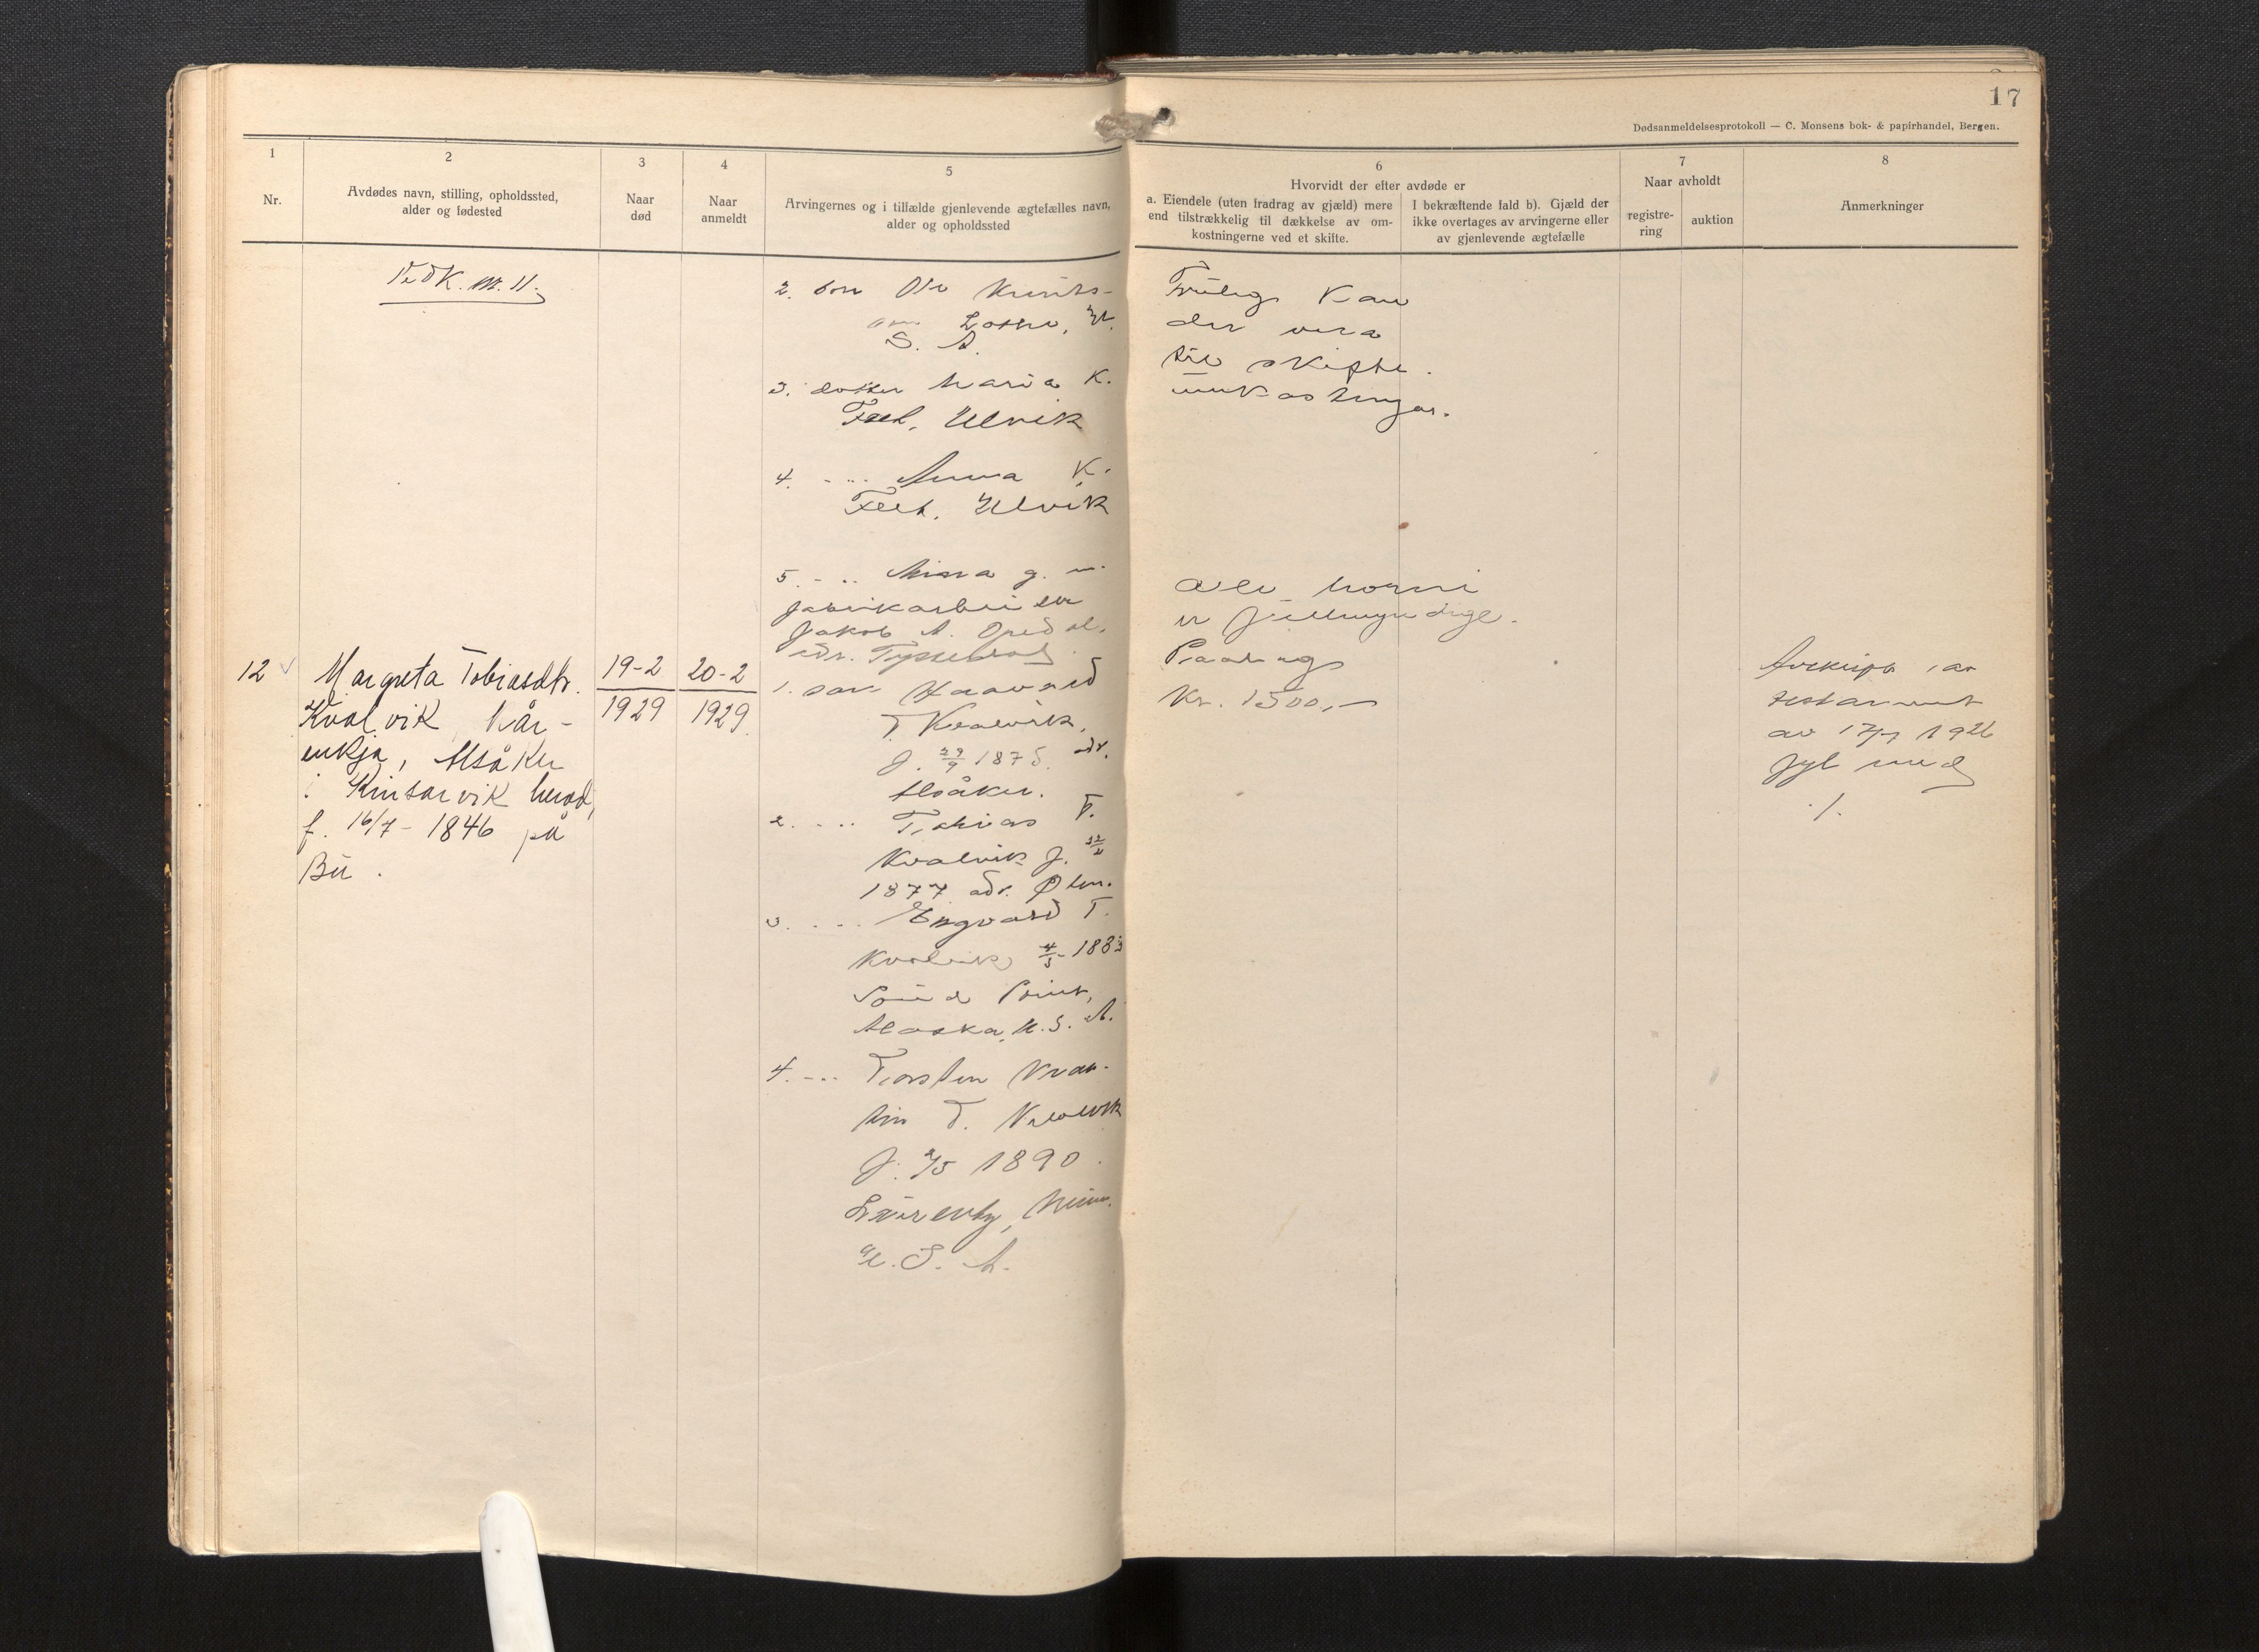 17
Dødsanmeldelsesprotokoll — C. Monsens bok- & papirhandel, Bergen.
1
Nr.
2
Avdødes navn, stilling, opholdssted,
alder og fødested
3
Naar
død
4
Naar
anmeldt
5
Arvingernes og i tilfælde gjenlevende ægtefælles navn,
alder og opholdssted
6
Hvorvidt der efter avdøde er
a. Eiendele (uten fradrag av gjæld) mere
end tilstrækkelig til dækkelse av om-
kostningerne ved et skifte.
I bekræftende fald b). Gjæld der
ikke overtages av arvingerne eller
av gjenlevende ægtefælle
7
Naar avholdt
registre-
ring
auktion
8
Anmerkninger
Vedk. nr. 11.
2. son Ola Knuts-
U.
S. A.
3. dotter Maria K.
Tveit, Ulvik
4. - .. Anna K.
Tveit, Ulvik
5. - .. Misva g. m.
fabrikarbeider
Jakob A. Opedal,
adr. Tyssedal.
Truleg kan
der vera
til skifte-
umkostningar.
Alle borni
er fullmyndige.
12
Margreta Tobiasdtr.
Kvalvik, kår-
enkja, Alsåker
i Kinsarvik herad,
f. 16/7 - 1846 på
Bu.
19-2
1929
20-2
1929.
1. son Haavard
T. Kvalvik,
f. 29/9 1875. adr.
Alsåker.
2. - .. Tobias T.
Kvalvik f.
1877 adr. Ølen.
3. - .. Engvard T.
Kvalvik 4/3 - 1883
Sound Point,
Alaska, U. S. A.
4. - .. Torsten Kvan-
tin T. Kvalvik
f. 1890.
Minn.
U. S. A.
Paalag
Kr. 1500,-
Avskrift av
testament
av 17/7 1926
fylt med
./.